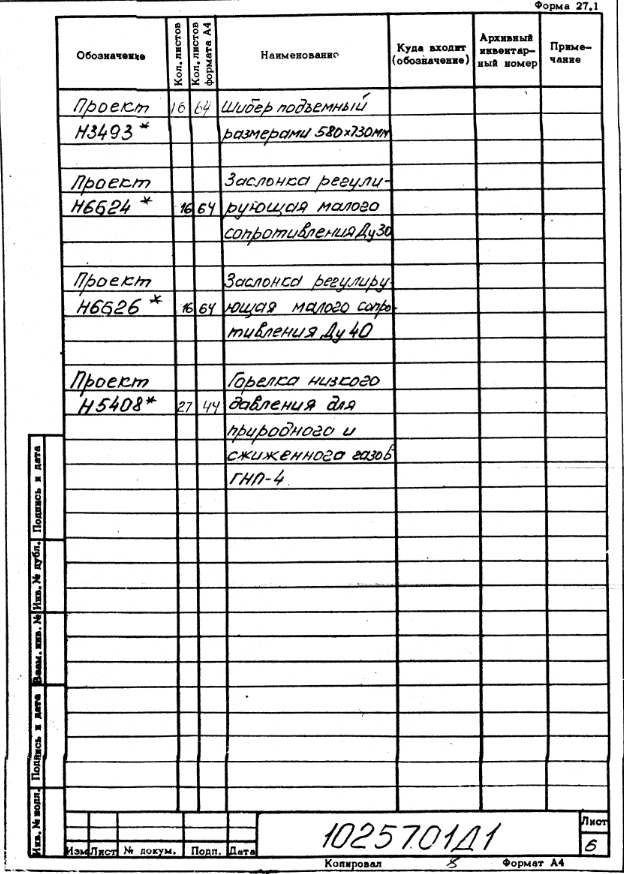 Форма 27.1
Обозначение Кол. листов Кол. листов формата А4 Наименование Куда входит (обозначение) Архивный инвентар-ный номер Приме-чание
Проект 16 64 Шибер подъемный
Н3493 * размерами 580х730мм
Проект Заслонка регули-
Н6624 * 16 64 рующая малого
сопротивления Ду30
Проект Заслонка регулиру-
Н6626 * 16 64 ющая малого сопро-
тивления Ду 40
Проект Горелка низкого
Н5408* 27 44 давления для
природного и
сжиженного газов
ГНП-4
Инв. № подл. Подпись и дата Взам. инв. № Инв. № дубл. Подпись и дата
1025701Д1
Лист
6
Изм Лист № докум. Подп. Дата
Копировал Формат А4